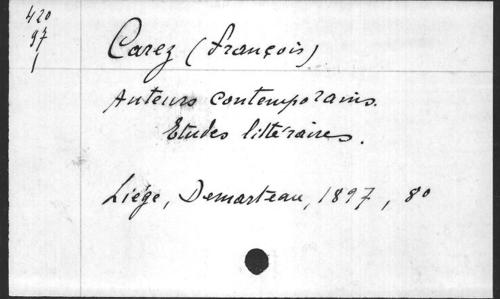 420
97
1
Carez (François)
Auteurs contemporains.
Etudes littéraires.
Liége, Demarteau, 1897, 8o